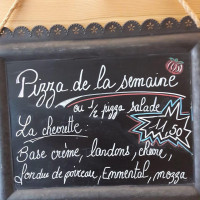 Pizza de la semaine
ou 1/2 pizza salade
11,50
La chevrette :
Base crème, lardons, chèvre,
fondue de poireau, Emmental, mozza